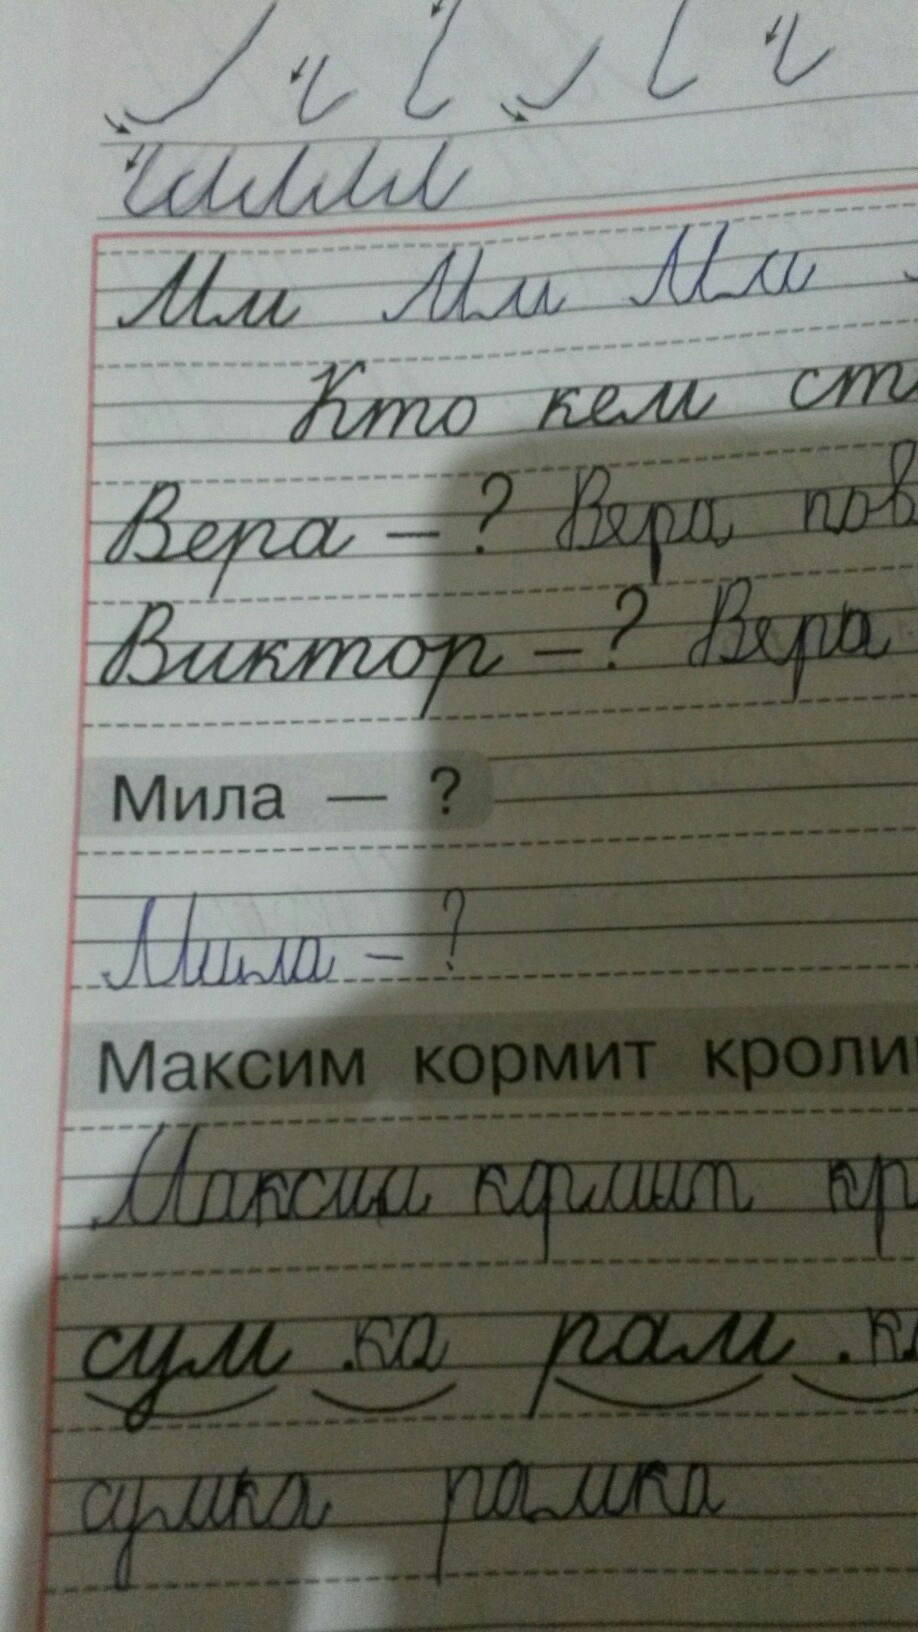 Мм Мм Мм
Кто кем ст
Вера – ? Вера пов
Виктор – ? Вера
Мила — ?
Мила – ?
Максим кормит кроли
Максим кормит кр
сум .ка рам .ка
сумка рамка